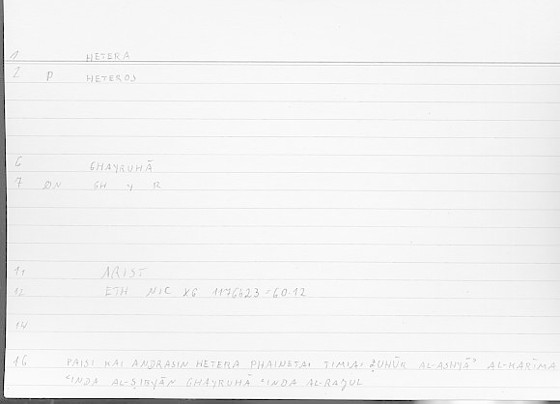 1 HETERA
2 P HETEROS
6 GHAYRUHĀ
7 ØN GH Y R
11 ARIST
12 ETH NIC X6 1176b23=60.12
14
16 PAISI KAI ANDRASIN HETERA PHAINETAI TIMIA: ẒUHŪR AL-ASHYĀʾ AL-KARĪMA
ʿINDA AL-ṢIBYĀN GHAYRUHĀ ʿINDA AL-RAJUL